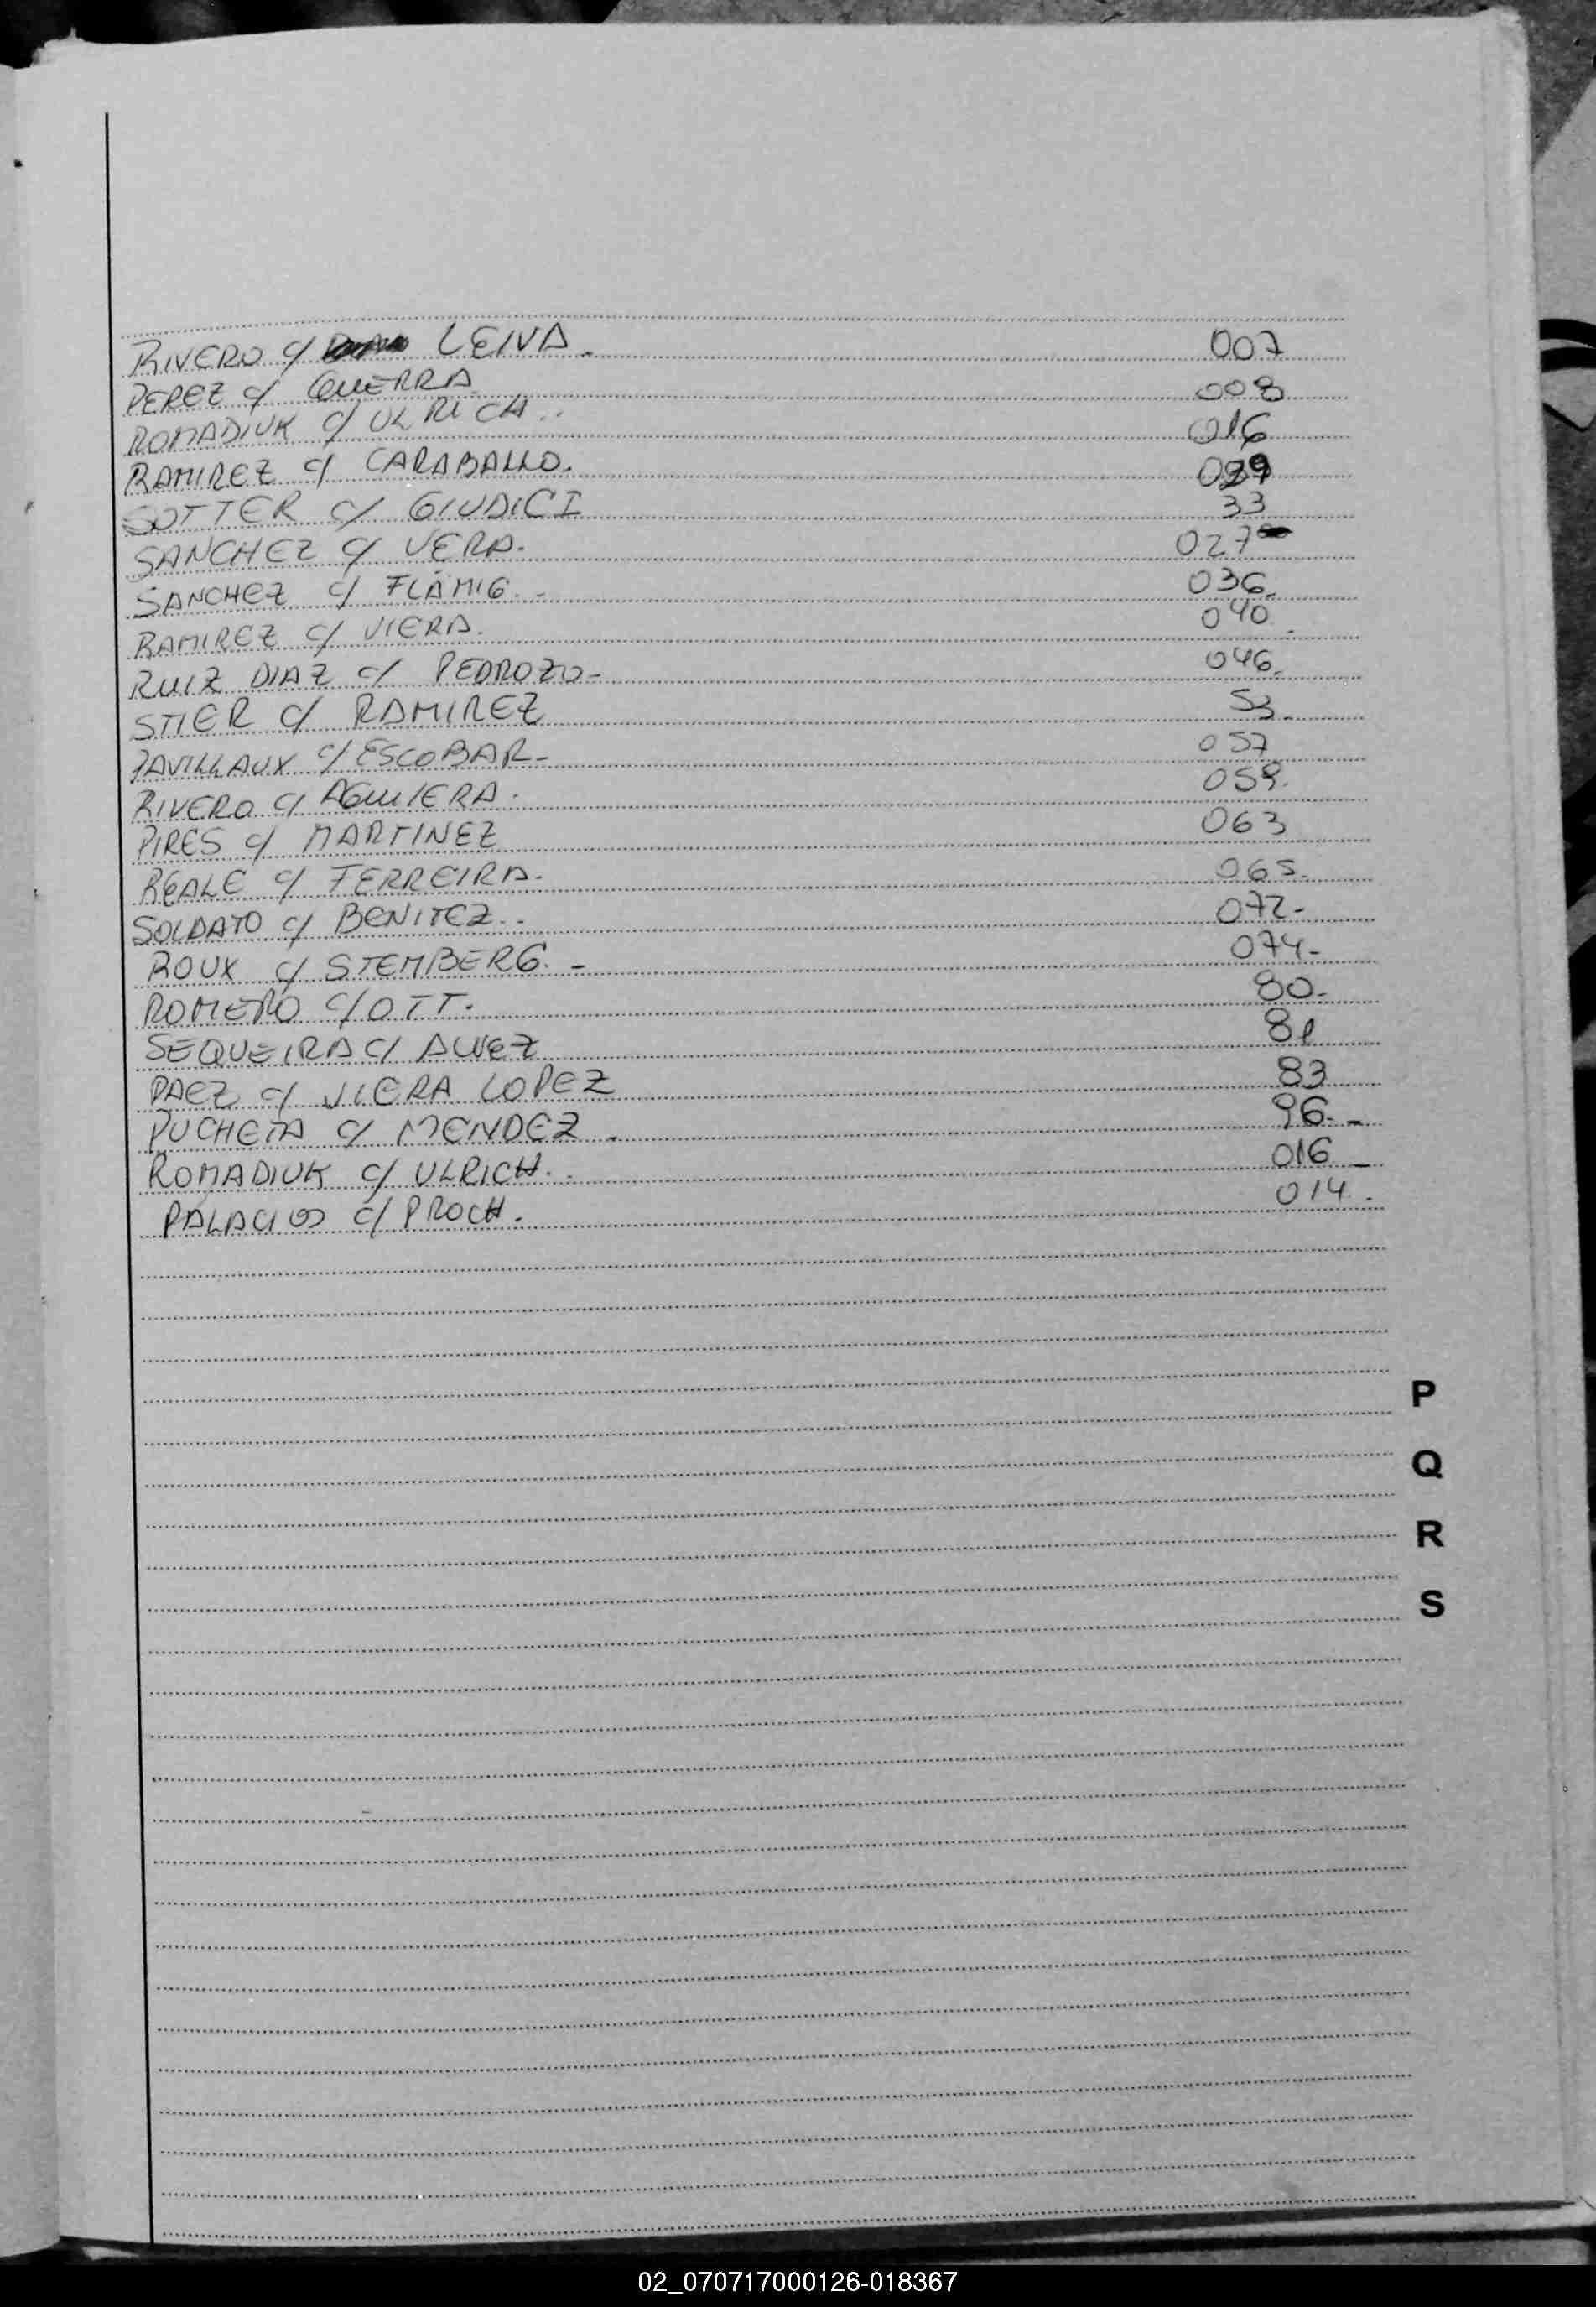 RIVERO c/ LEIVA. 007
PEREZ c/ GUERRA 008
ROMADIUK c/ ULRICH.. 016
RAMIREZ c/ CARABALLO. 029
SOTTER c/ GIUDICI 33
SANCHEZ c/ VERA. 027
SANCHEZ c/ FLAMIG.- 036.
RAMIREZ c/ VIERA. 040.
RUIZ DIAZ c/ PEDROZO- 046.
STIER c/ RAMIREZ 53.
PAVILLAUX c/ ESCOBAR- 057
RIVERO c/ AGUIERA. 059.
PIRES c/ MARTINEZ 063
REALE c/ FERREIRA. 065.
SOLDATO c/ BENITEZ.. 072-
ROUX c/ STEMBERG.- 074-
ROMERO c/ OTT. 80-
SEQUEIRA c/ ALVEZ 81
PAEZ c/ VIERA LOPEZ 83
PUCHETA c/ MENDEZ. 96.-
ROMADIUK c/ ULRICH.. 016-
PALACIOS c/ PROCH. 014.
P
Q
R
S
02_070717000126-018367